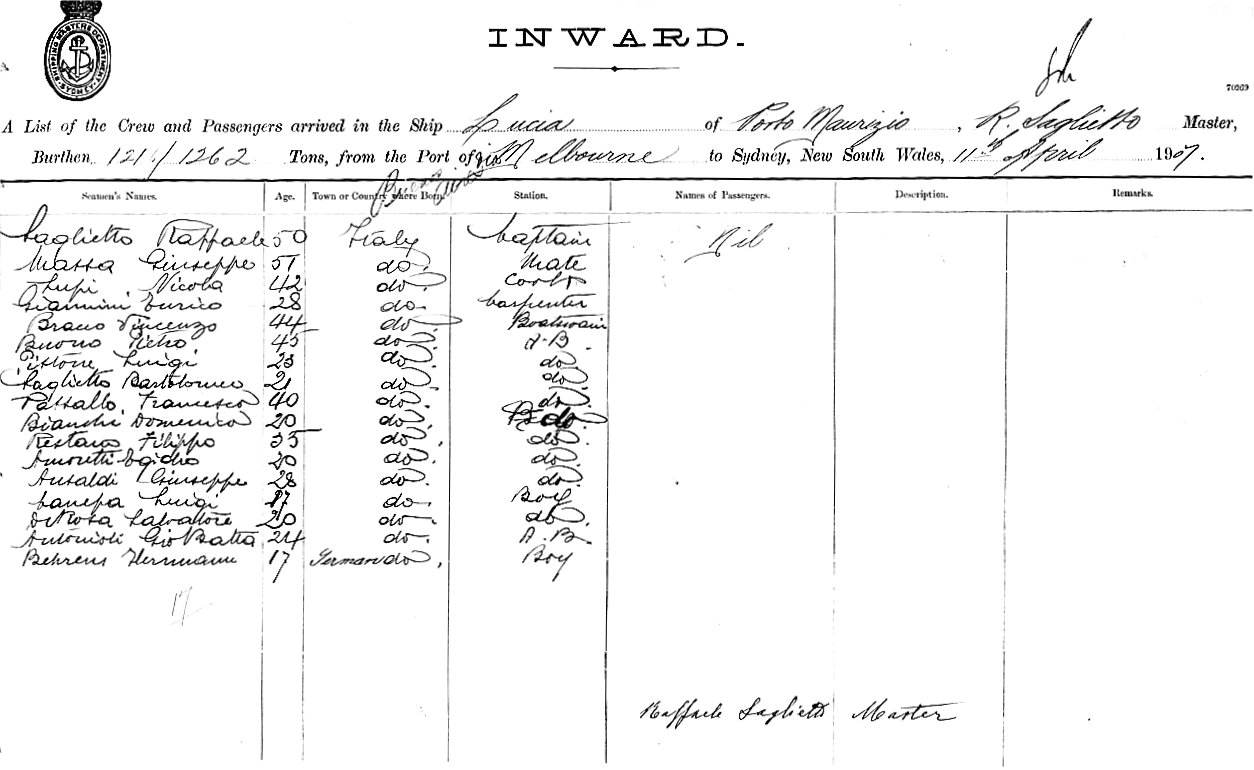 SHIPPING MASTERS DEPARTMENT SYDNEY
INWARD.
70269
A List of the Crew and Passengers arrived in the Ship Lucia of Porto Maurizio, R. Saglietto Master,
Burthen 1219/1262 Tons, from the Port of via Melbourne to Sydney, New South Wales, 11th April 1907.
Buenos Aires
Seamen's Names. Age. Town or Country where Born. Station. Names of Passengers. Description. Remarks.
Saglietto Raffaele 50 Italy Captain Nil
Massa Giuseppe 51 do. Mate
Lupi Nicola 42 do. Cook
Giannini Enrico 28 do. Carpenter
Bracco Vincenzo 44 do Boatswain
Buono Pietro 45 do. A.B.
Pistone Luigi 23 do. do.
Saglietto Bartolomeo 21 do. do.
Passallo Francesco 40 do. do.
Bianchi Domenico 20 do. do
Restano Filippo 35 do. do.
Amoretti Egidio 20 do. do.
Ansaldi Giuseppe 28 do. do.
Canepa Luigi 17 do. Boy
De Rosa Salvatore 20 do. do.
Antonioli Gio Batta 24 do. A.B.
Behrens Herrmann 17 German do. Boy
17
Raffaele Saglietto Master